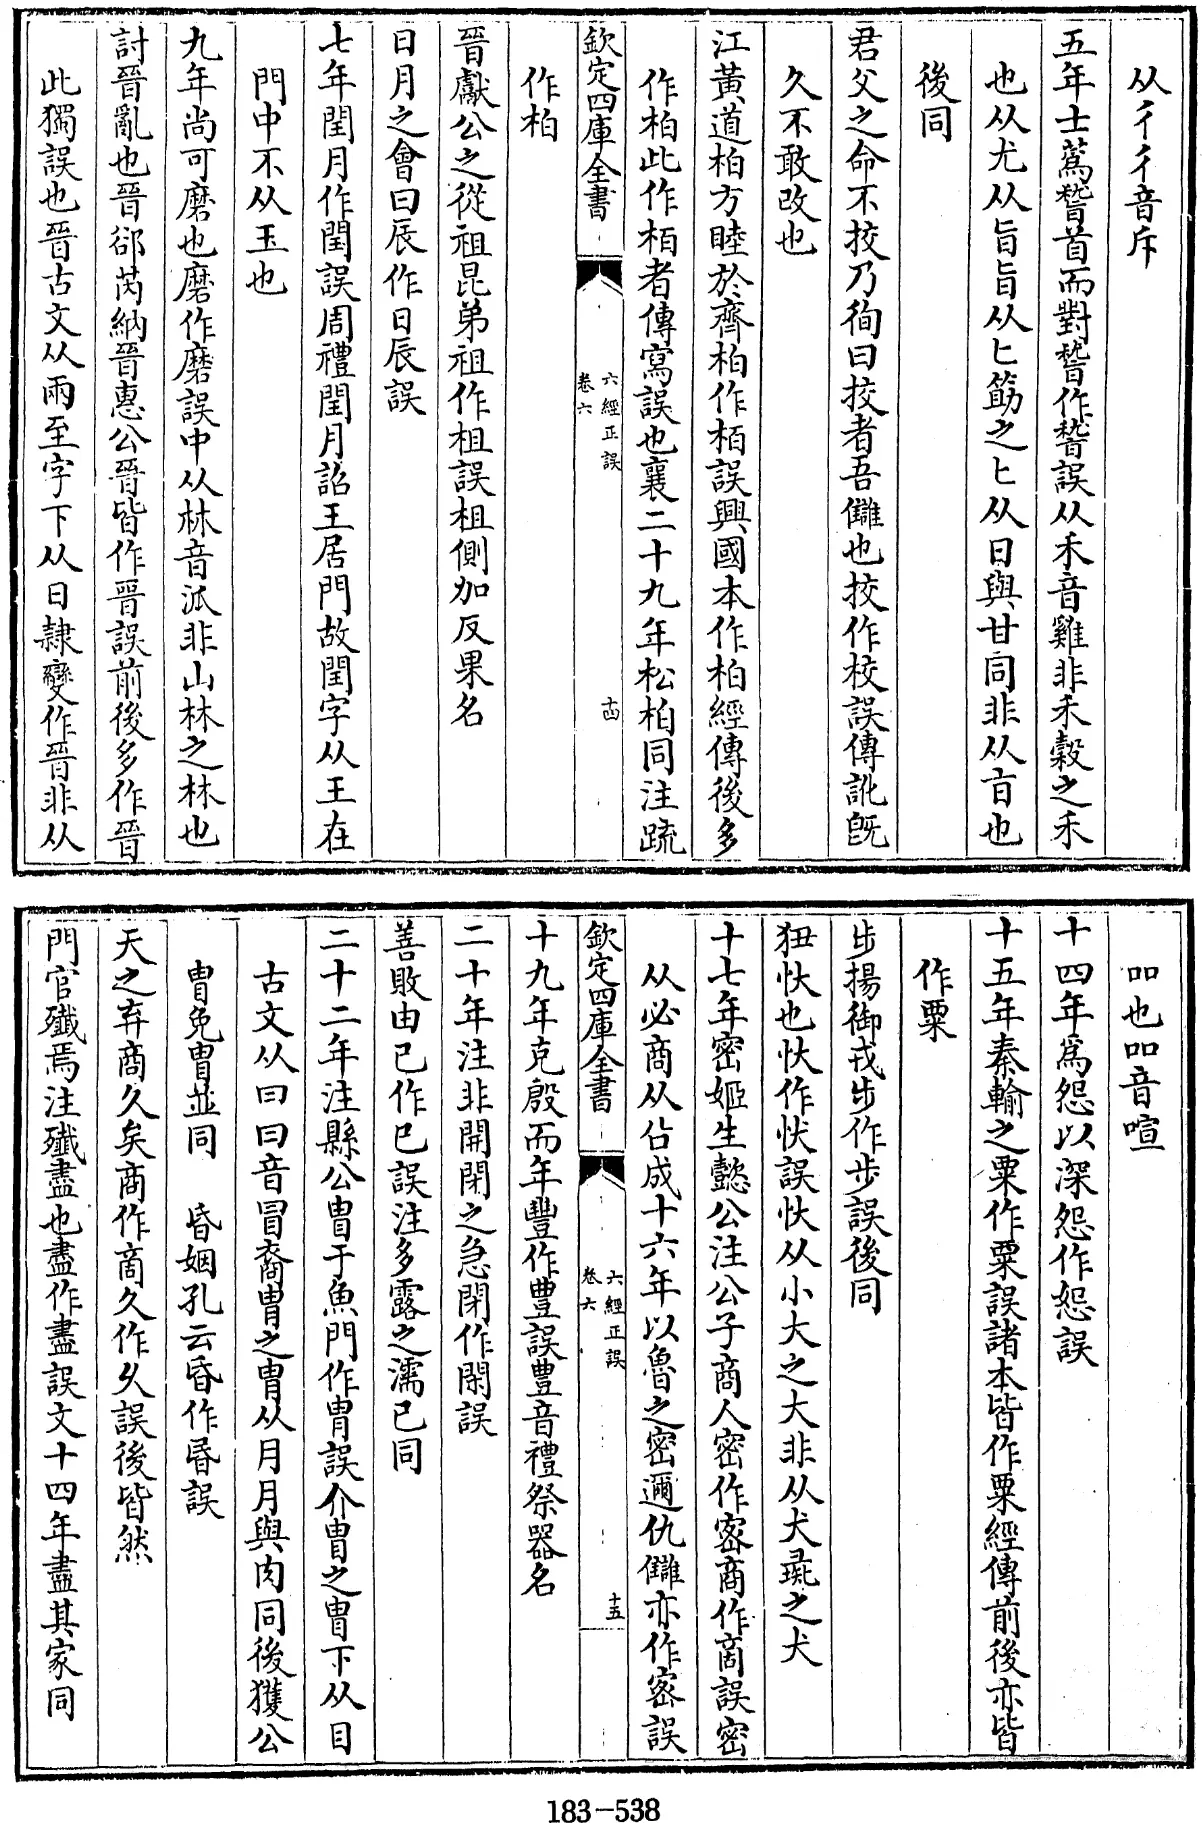 从彳彳音斥
五年士蒍稽首而對稽作嵇誤从禾音雞非禾穀之禾
也从尤从旨旨从匕筯之匕从日與甘同非从盲也
後同
君父之命不挍乃徇曰挍者吾讎也挍作校誤傳訛旣
久不敢改也
江黃道柏方睦於齊柏作栢誤興國本作柏經傳後多
作柏此作栢者傳寫誤也襄二十九年松柏同注疏
欽定四庫全書
六經正誤
卷六
十四
作柏
晉獻公之從祖昆弟祖作柤誤柤側加反果名
日月之會曰辰作日辰誤
七年閏月作閠誤周禮閏月詔王居門故閏字从王在
門中不从玉也
九年尚可磨也磨作磨誤中从𣏟音派非山林之林也
討晉亂也晉郤芮納晉惠公晉皆作晋誤前後多作晉
此獨誤也晉古文从兩至字下从日隸變作晉非从
吅也吅音喧
十四年爲怨以深怨作怨誤
十五年秦輸之粟作粟誤諸本皆作粟經傳前後亦皆
作粟
步揚御戎步作歩誤後同
狃忕也忕作忲誤忕从小大之大非从犬㲋之犬
十七年密姬生懿公注公子商人密作宻商作啇誤密
从必商从㕣成十六年以魯之密邇仇讎亦作宻誤
欽定四庫全書
六經正誤
卷六
十五
十九年克殷而年豐作豊誤豊音禮祭器名
二十年注非開閉之急閉作閇誤
善敗由己作已誤注多露之濡己同
二十二年注縣公冑于魚門作胄誤介冑之冑下从目
古文从曰曰音冒裔胄之胄从月月與肉同後獲公
冑免冑並同　昏姻孔云昏作昬誤
天之弃商久矣商作啇久作夂誤後皆然
門官殲焉注殲盡也盡作盡誤文十四年盡其家同
183-538